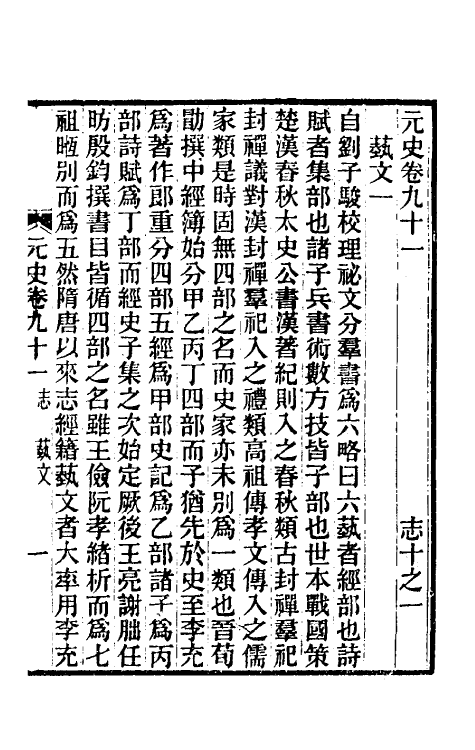 元史卷九十一 志十之一
藝文一
自劉子駿校理祕文分羣書爲六略曰六藝者經部也詩
賦者集部也諸子兵書術數方技皆子部也世本戰國策
楚漢春秋太史公書漢著紀則入之春秋類古封禪羣祀
封禪議對漢封禪羣祀入之禮類高祖傳孝文傳入之儒
家類是時固無四部之名而史家亦未別爲一類也晉荀
勖撰中經簿始分甲乙丙丁四部而子猶先於史至李充
爲著作郎重分四部五經爲甲部史記爲乙部諸子爲丙
部詩賦爲丁部而經史子集之次始定厥後王亮謝朏任
昉殷鈞撰書目皆循四部之名雖王儉阮孝緒析而爲七
祖暅別而爲五然隋唐以來志經籍藝文者大率用李充
元史卷九十一 志 藝文 一